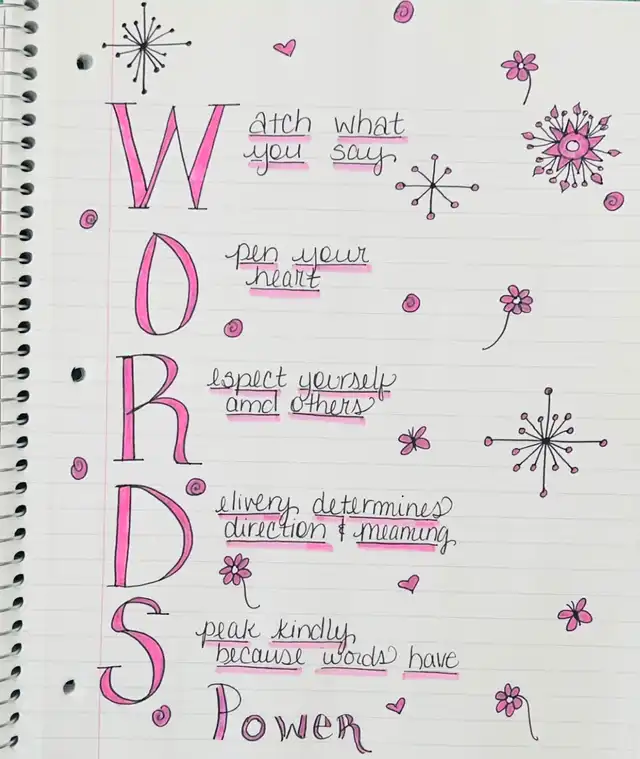 Watch what
you say
Open your
heart
Respect yourself
and others
Delivery determines
direction & meaning
Speak kindly
because words have
Power